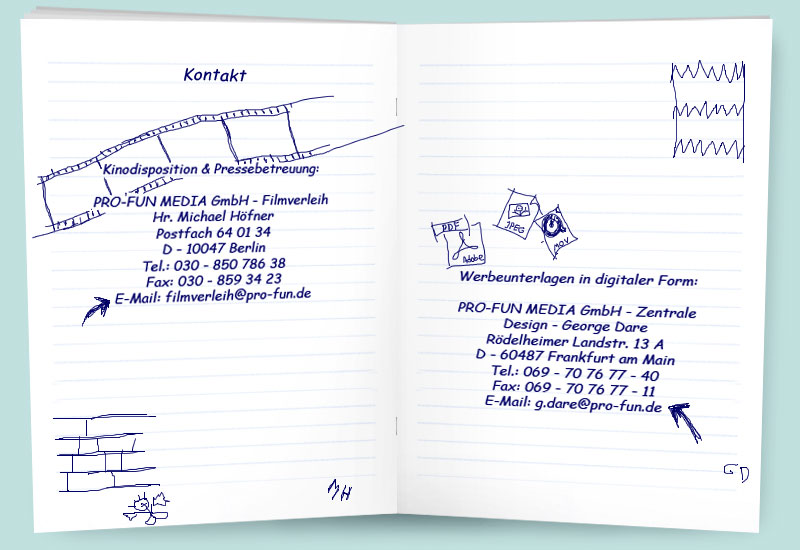 Kontakt
Kinodisposition & Pressebetreuung:
PRO-FUN MEDIA GmbH - Filmverleih
Hr. Michael Höfner
Postfach 64 01 34
D - 10047 Berlin
Tel.: 030 - 850 786 38
Fax: 030 - 859 34 23
E-Mail: filmverleih@pro-fun.de
MH
PDF
Adobe
JPEG
MOV
Werbeunterlagen in digitaler Form:
PRO-FUN MEDIA GmbH - Zentrale
Design - George Dare
Rödelheimer Landstr. 13 A
D - 60487 Frankfurt am Main
Tel.: 069 - 70 76 77 - 40
Fax: 069 - 70 76 77 - 11
E-Mail: g.dare@pro-fun.de
GD